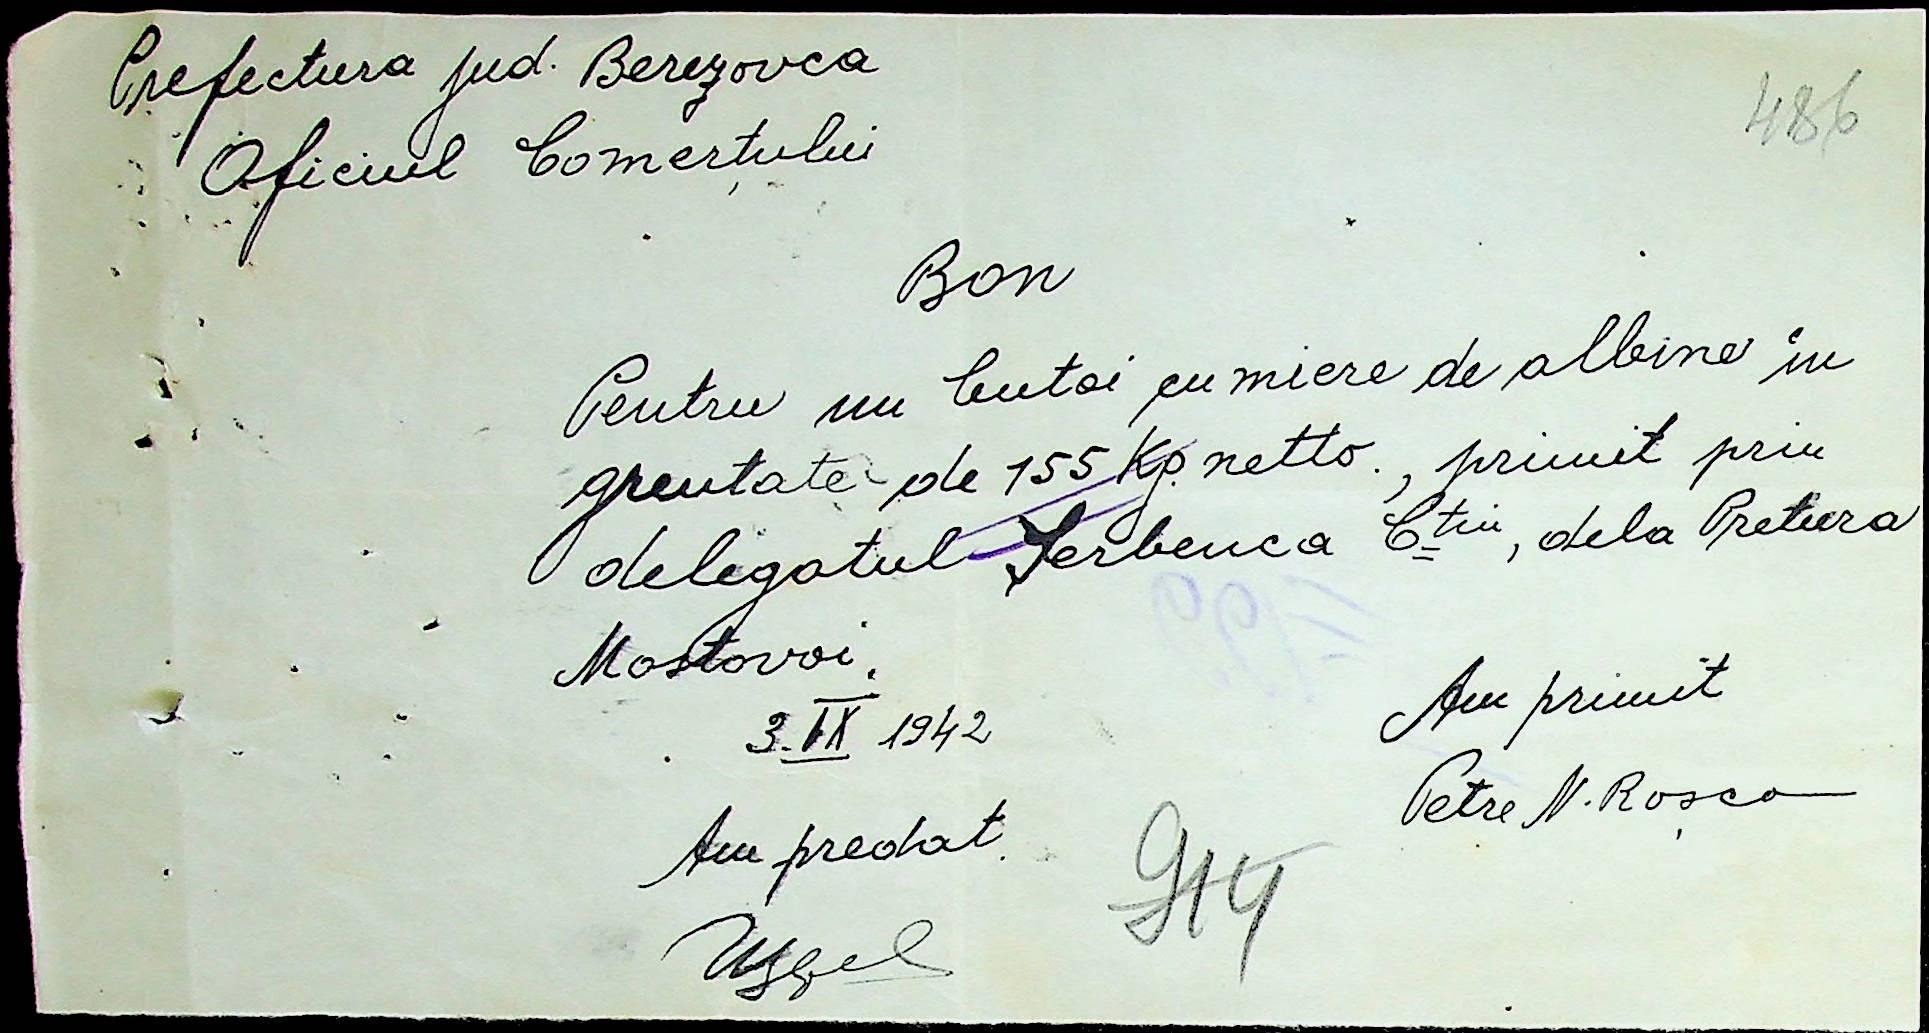 Prefectura jud. Berezovca
486
Oficiul Comerțului
Bon
Pentru un butoi cu miere de albine în
greutate de 155 Kg. netto., primit prin
delegatul Serbenca C-tin, dela Pretura
Mostovoi.
3. IX 1942
Am primit
Petre N. Roșca
Am predat.